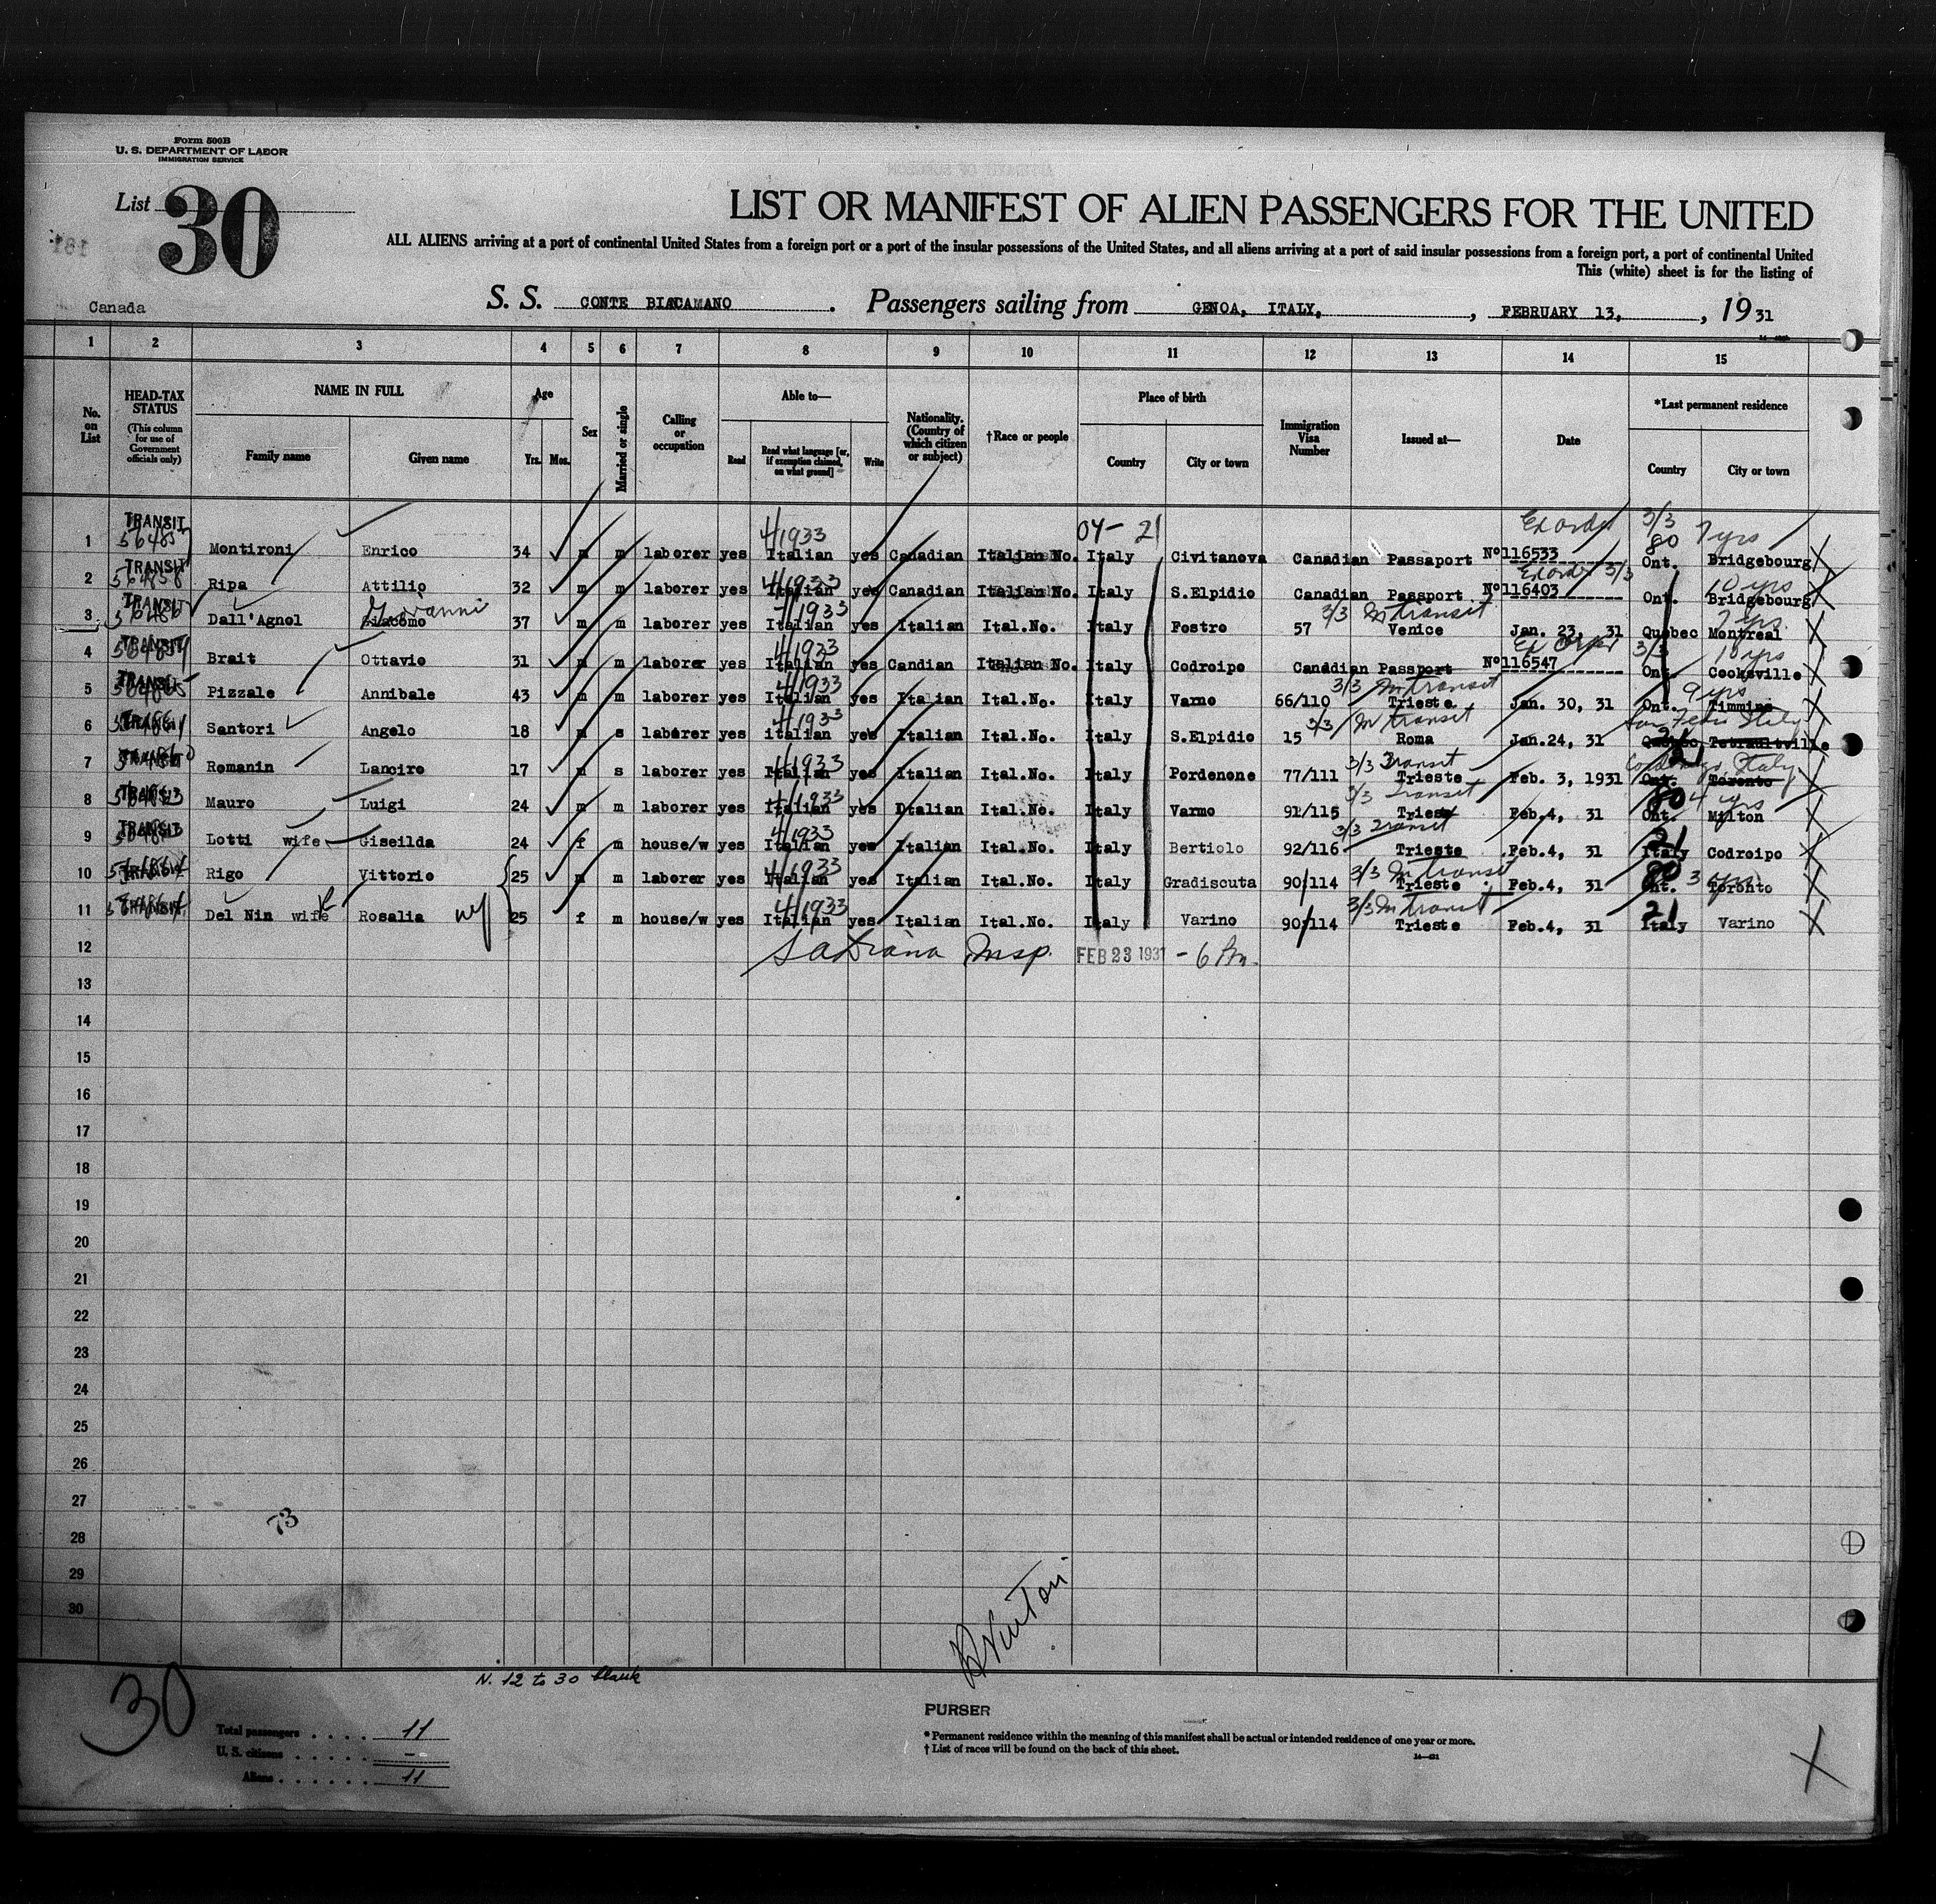 Form 500B
U. S. DEPARTMENT OF LABOR
IMMIGRATION SERVICE
List 30
LIST OR MANIFEST OF ALIEN PASSENGERS FOR THE UNITED
ALL ALIENS arriving at a port of continental United States from a foreign port or a port of the insular possessions of the United States, and all aliens arriving at a port of said insular possessions from a foreign port, a port of continental United
This (white) sheet is for the listing of
Canada
S. S. CONTE BIACAMANO. Passengers sailing from GENOA, ITALY, , FEBRUARY 13, , 1931
1 2 3 4 5 6 7 8 9 10 11 12 13 14 15
No. on List
HEAD-TAX STATUS (This column for use of Government officials only)
NAME IN FULL Family name Given name
Age Yrs. Mos.
Sex
Married or single
Calling or occupation
Able to— Read Read what language [or, if exemption claimed, on what ground] Write
Nationality. (Country of which citizen or subject)
†Race or people
Place of birth Country City or town
Immigration Visa Number
Issued at—
Date
*Last permanent residence Country City or town
4/1933 04- 21 3/3 80 7 yrs
1 TRANSIT Montironi Enrico 34 m m laborer yes Italian yes Canadian Italian No. Italy Civitanova Canadian Passaport Nº116533 Ont. Bridgebourg
4/1933 3/3 10 yrs
2 TRANSIT Ripa Attilio 32 m m laborer yes Italian yes Canadian Italian No. Italy S.Elpidio Canadian Passport Nº116403 Ont. Bridgebourg
Giovanni 4/1933 3/3 In transit 7 yrs
3 TRANSIT Dall'Agnol Giacomo 37 m m laborer yes Italian yes Italian Ital.No. Italy Fostro 57 Venice Jan. 23, 31 Quebec Montreal
4/1933 3/3 10 yrs
4 TRANSIT Brait Ottavio 31 m m laborer yes Italian yes Candian Italian No. Italy Codroipo Canadian Passport Nº116547 Ont. Cooksville
4/1933 3/3 In transit 9 yrs
5 TRANSIT Pizzale Annibale 43 m m laborer yes Italian yes Italian Ital.No. Italy Varmo 66/110 Trieste Jan. 30, 31 Ont. Timmins
4/1933 3/3 In transit Italy
6 Santori Angelo 18 m s laborer yes italian yes Italian Ital.No. Italy S.Elpidio 15 Roma Jan.24, 31 Quebec, Tetraultville
4/1933 3/3 Transit 21 Italy
7 TRANSIT Romanin Lanciro 17 m s laborer yes Italian yes Italian Ital.No. Italy Pordenone 77/111 Trieste Feb. 3, 1931 Ont. Toronto
4/1933 3/3 Transit 80 4 yrs
8 TRANSIT Mauro Luigi 24 m m laborer yes Italian yes Italian Ital.No. Italy Varmo 91/115 Trieste Feb.4, 31 Ont. Milton
4/1933 3/3 Transit 21
9 TRANSIT Lotti wife Giseilda 24 f m house/w yes Italian yes Italian Ital.No. Italy Bertiolo 92/116 Trieste Feb.4, 31 Italy Codroipo
4/1933 3/3 In transit 80 3 yrs
10 TRANSIT Rigo Vittorio 25 m m laborer yes Italian yes Italian Ital.No. Italy Gradiscuta 90/114 Trieste Feb.4, 31 Ont. Toronto
4/1933 3/3 In transit 21
11 TRANSIT Del Nin wife Rosalia 25 f m house/w yes Italian yes Italian Ital.No. Italy Varino 90/114 Trieste Feb.4, 31 Italy Varino
12 Insp. FEB 23 1931 - 6 Pm.
13
14
15
16
17
18
19
20
21
22
23
24
25
26
27
28
29
30
73
N. 12 to 30 blank
30
Total passengers . . . . 11
U. S. citizens . . . . . -
Aliens . . . . . . 11
PURSER
* Permanent residence within the meaning of this manifest shall be actual or intended residence of one year or more.
† List of races will be found on the back of this sheet.